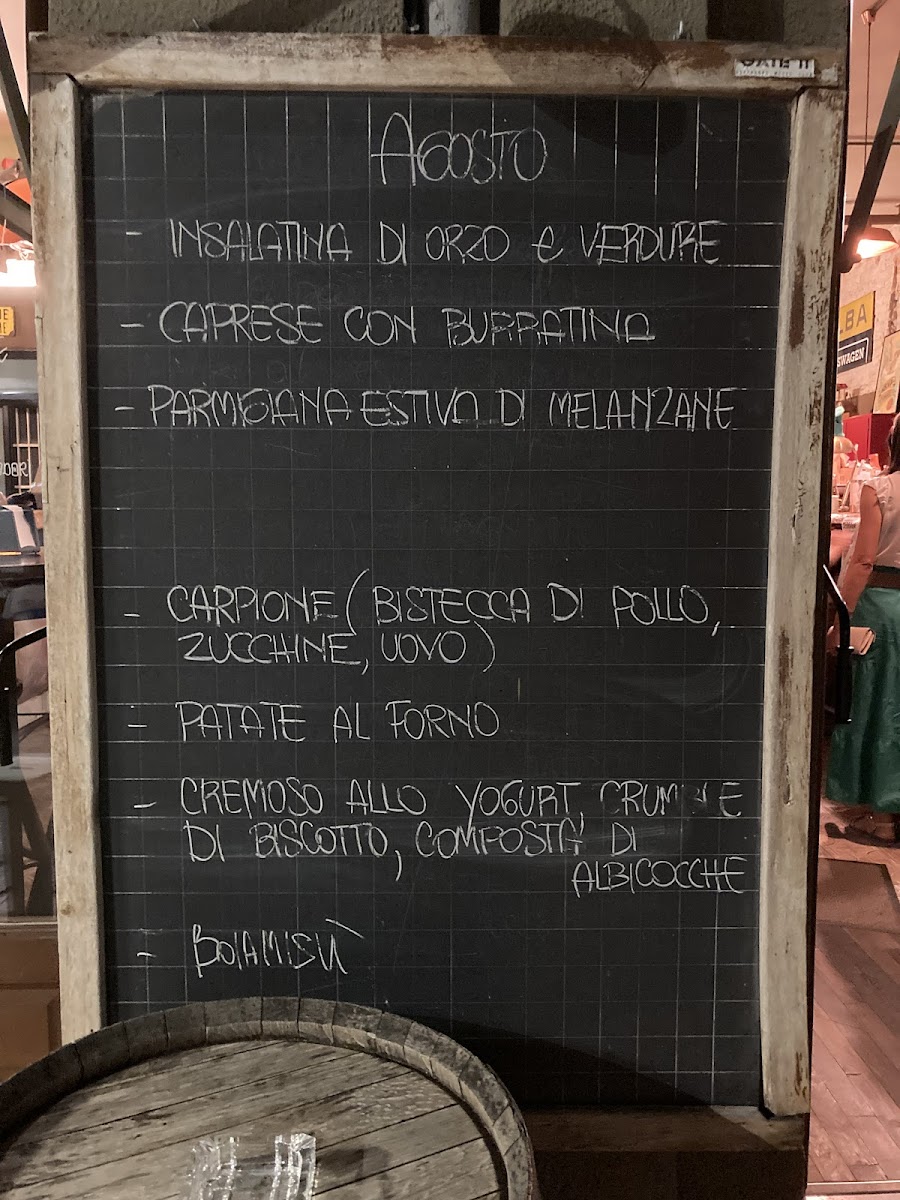 GATE 11
AGOSTO
- INSALATINA DI ORZO e VERDURE
- CAPRESE CON BURRATINA
- PARMIGIANA ESTIVA DI MELANZANE
- CARPIONE (BISTECCA DI POLLO,
ZUCCHINE, UOVO)
- PATATE AL FORNO
- CREMOSO ALLO YOGURT, CRUMBLE
DI BISCOTTO, COMPOSTA DI
ALBICOCCHE
- BOIAMISÙ
LBA
SWAGEN